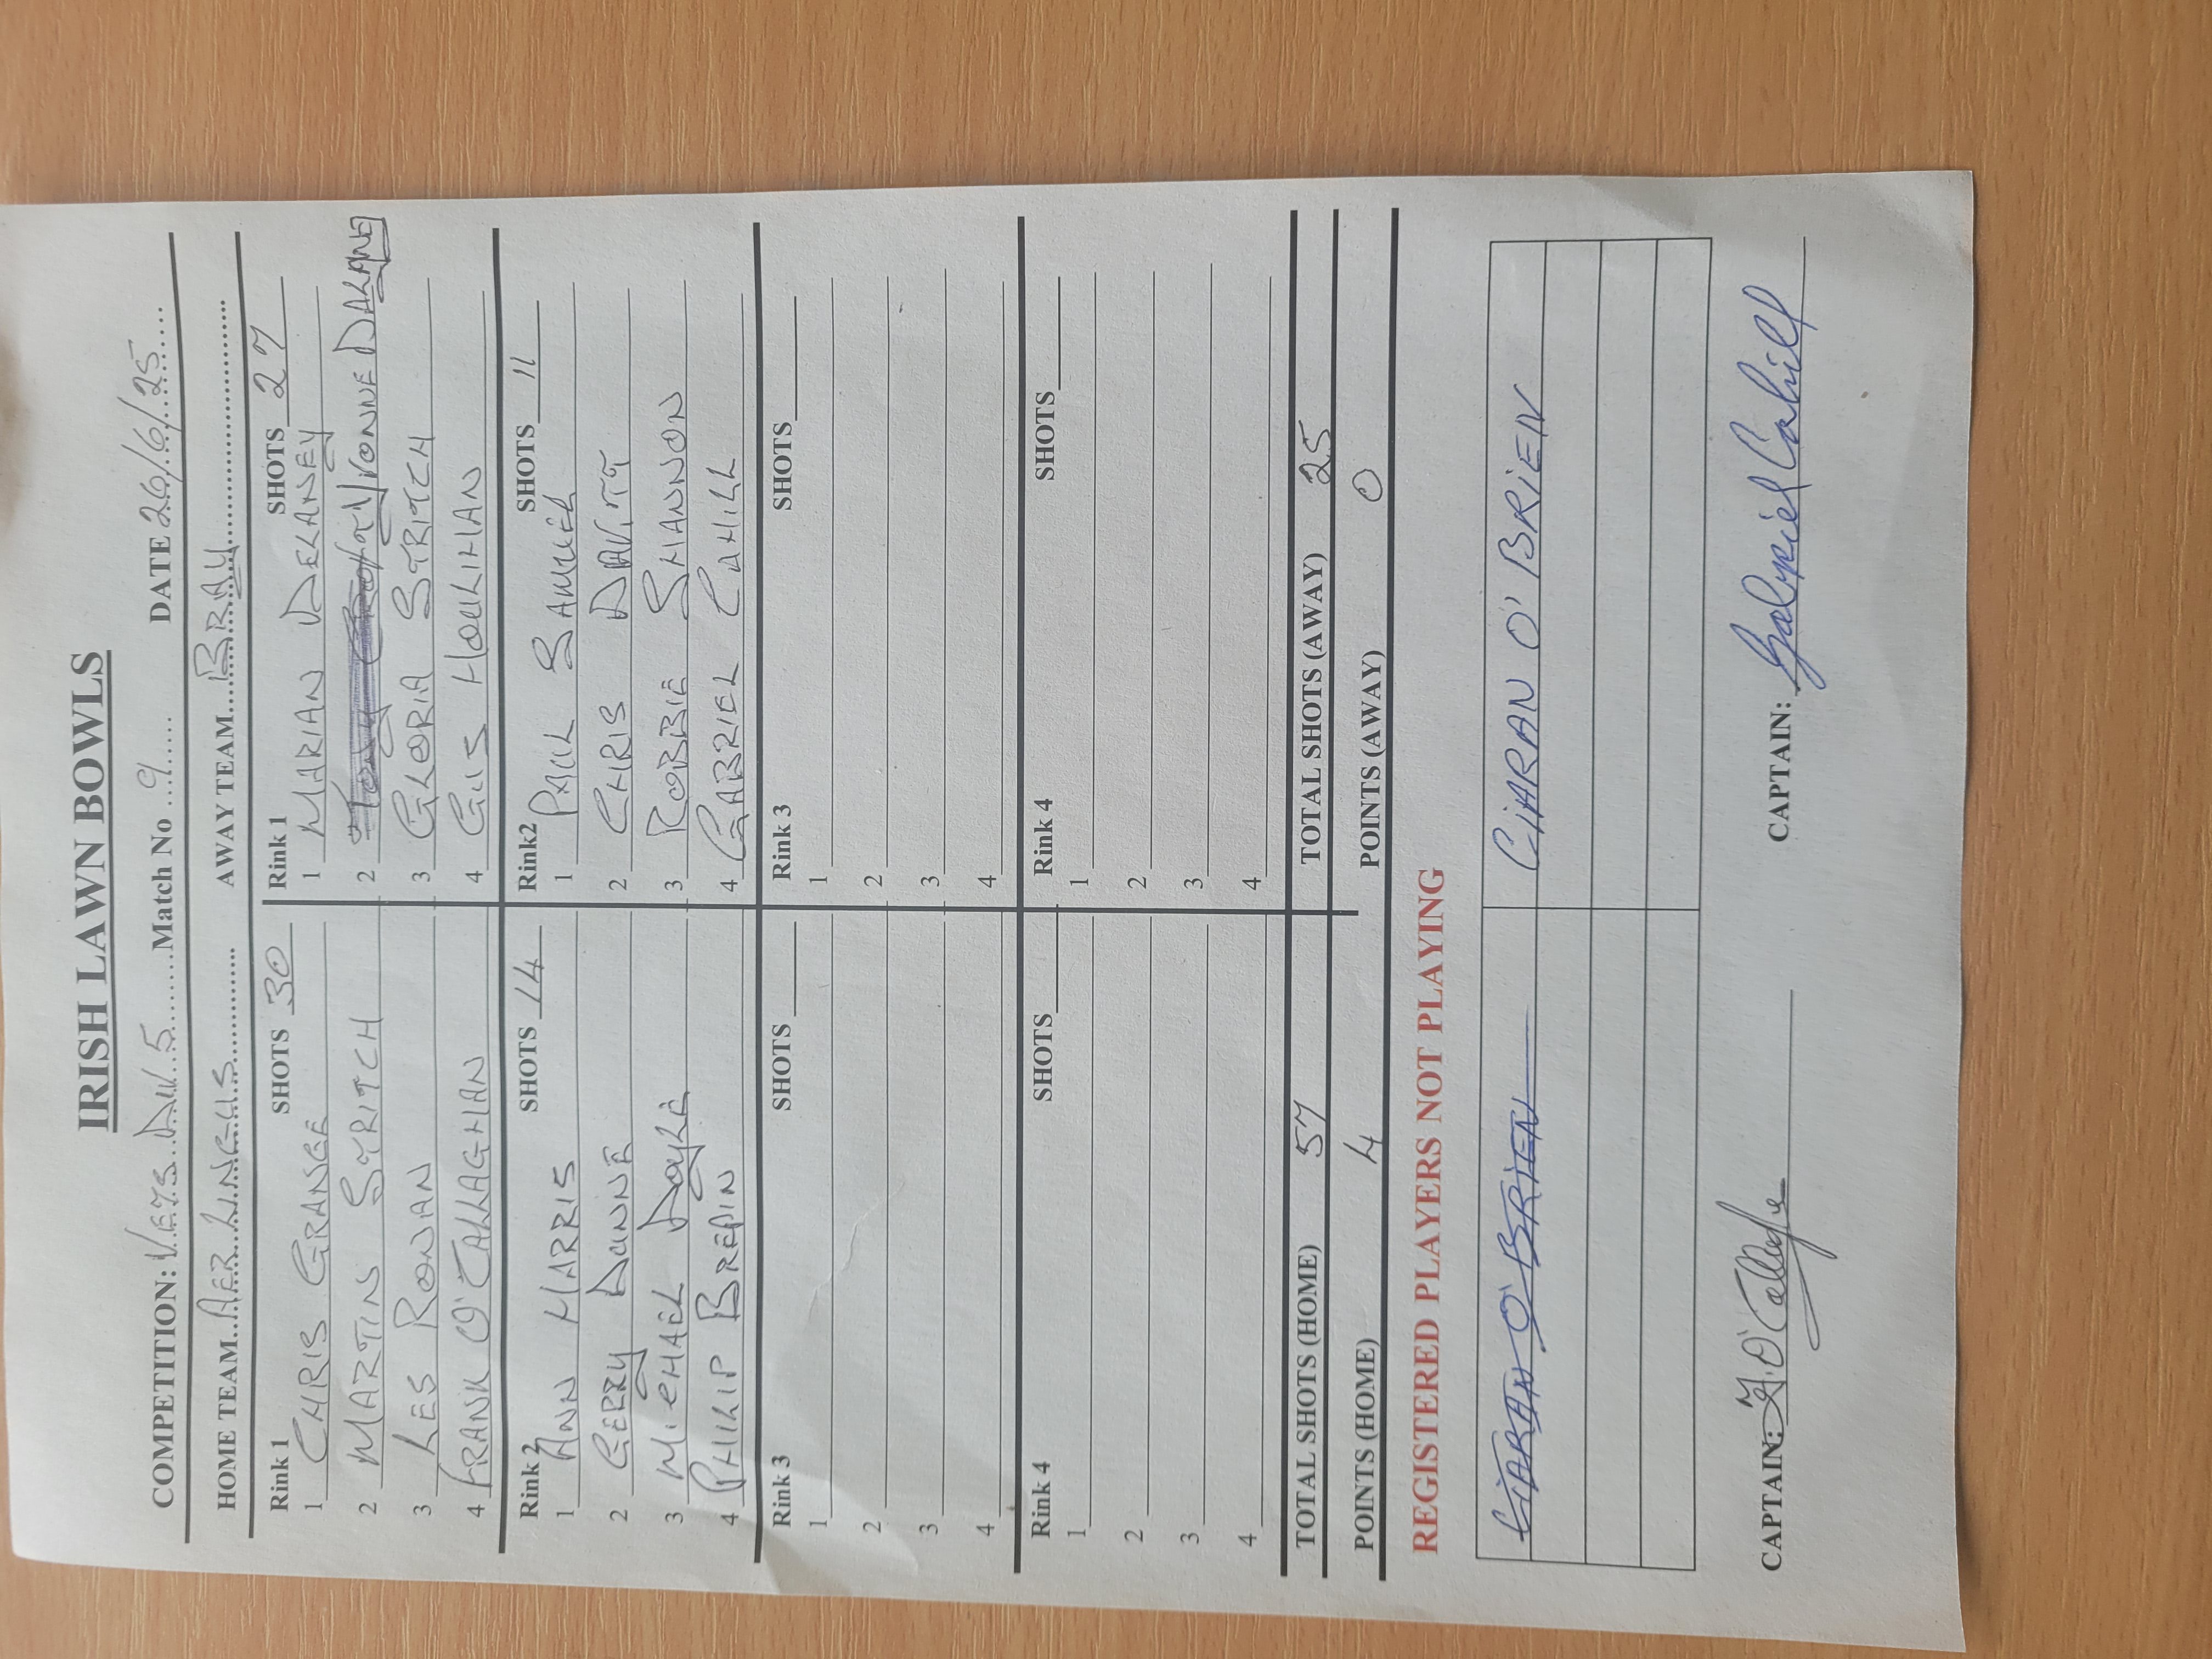 IRISH LAWN BOWLS
COMPETITION: VETS DIV 5 Match No 9 DATE 26/6/25
HOME TEAM AER LINGUS AWAY TEAM BRAY
Rink 1 SHOTS 30 Rink 1 SHOTS 27
1 CHRIS GRANGE 1 MARIAN DELANEY
2 MARTIN STRITCH 2 YVONNE DALAND
3 LES ROWAN 3 GLORIA STRITCH
4 FRANK O'CALLAGHAN 4 GUS HOULIHAN
Rink 2 SHOTS 14 Rink2 SHOTS 11
1 ANN HARRIS 1 PAUL SAMUEL
2 GERRY DUNNE 2 CHRIS DAVITT
3 MICHAEL DOYLE 3 ROBBIE SHANNON
4 PHILIP BREPIN 4 GABRIEL CAHILL
Rink 3 SHOTS Rink 3 SHOTS
1 1
2 2
3 3
4 4
Rink 4 SHOTS Rink 4 SHOTS
1 1
2 2
3 3
4 4
TOTAL SHOTS (HOME) 57 TOTAL SHOTS (AWAY) 25
POINTS (HOME) 4 POINTS (AWAY) 0
REGISTERED PLAYERS NOT PLAYING
CIARAN O'BRIEN CIARAN O'BRIEN
CAPTAIN: F. O'Callaghan CAPTAIN: Gabriel Cahill